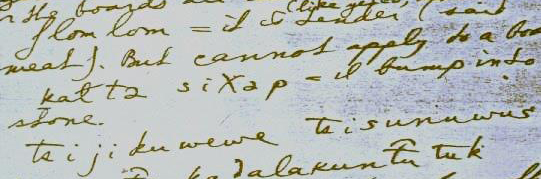 the boards are
flom lom = it is tender (like rice, (said
meat). But cannot apply to a
kat ta siXap = il bump into
stone.
tsijikuwewe tsisunuwus
kadalakuntu tuk